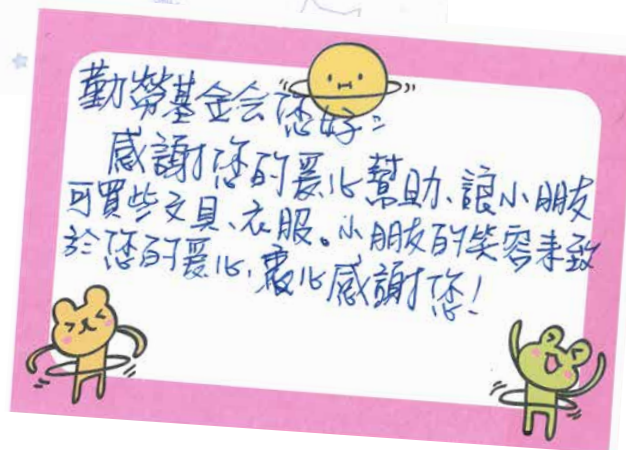 勤勞基金会您好：
感謝您的爱心幫助、讓小朋友
可買些文具、衣服。小朋友的笑容来致
於您的爱心,衷心感謝您!